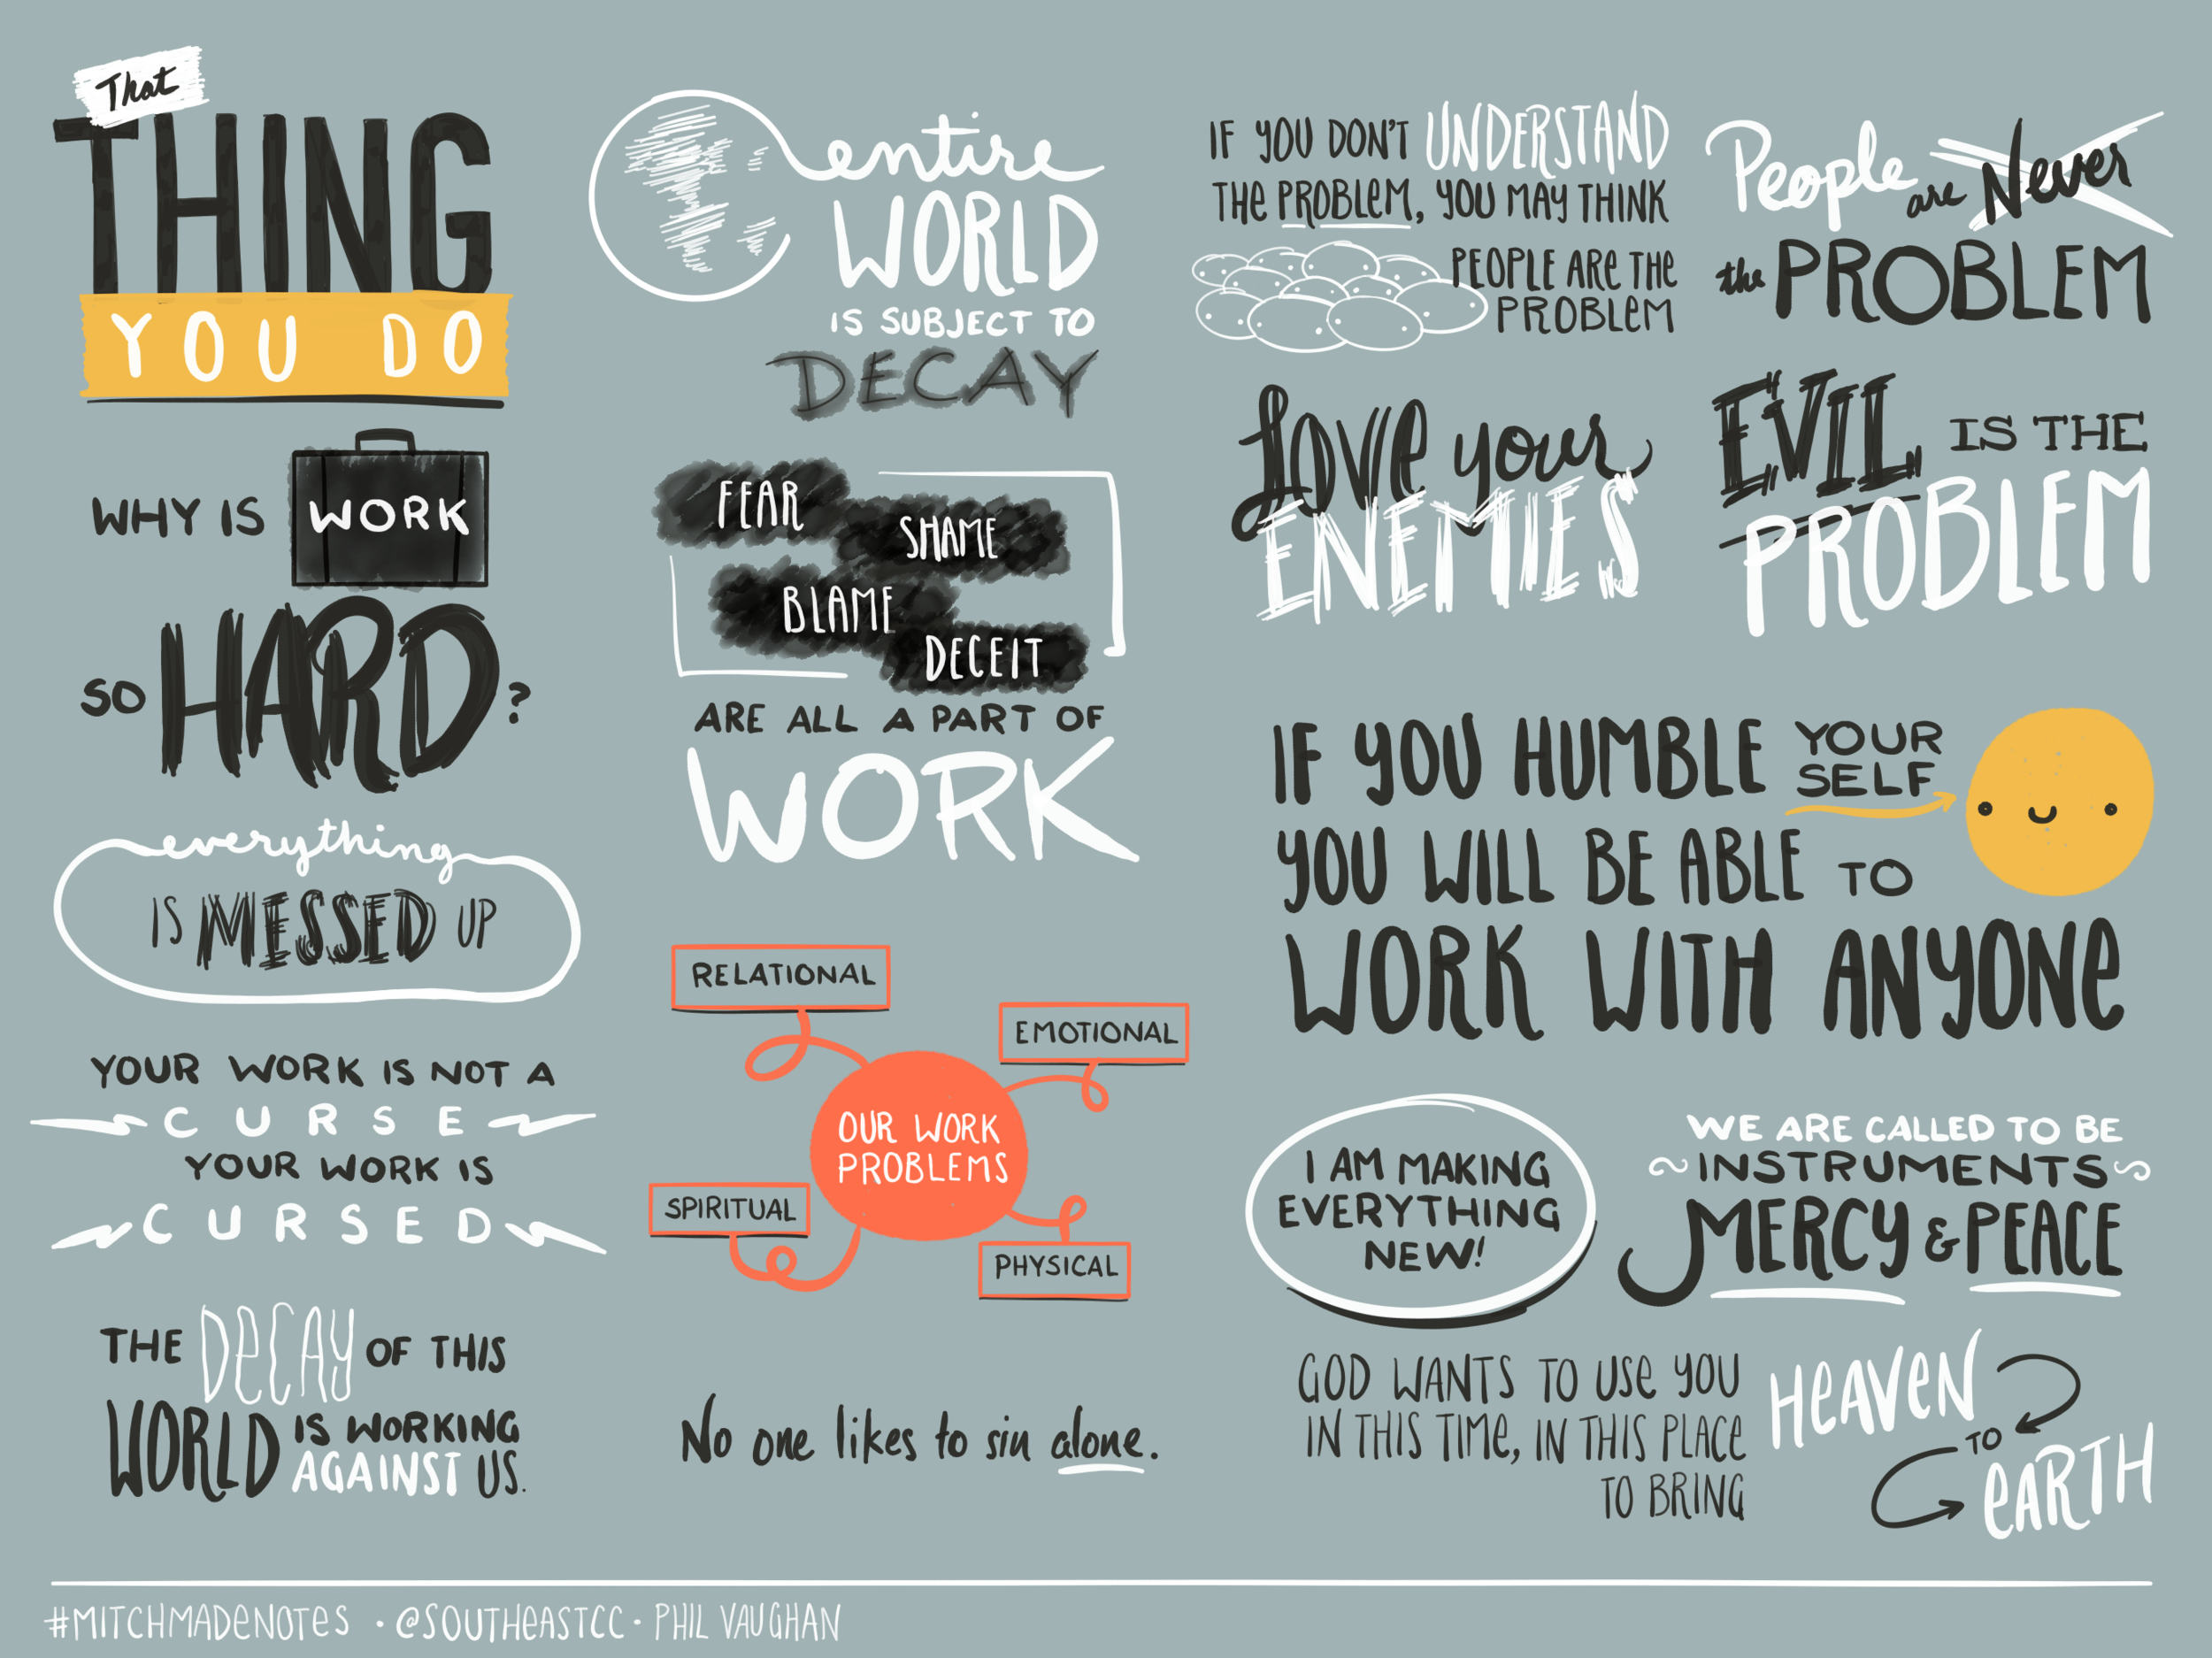 That
THING
YOU DO
WHY IS WORK
SO HARD?
everything
IS MESSED UP
YOUR WORK IS NOT A
CURSE
YOUR WORK IS
CURSED
THE DECAY OF THIS
WORLD IS WORKING
AGAINST US.
entire
WORLD
IS SUBJECT TO
DECAY
FEAR
SHAME
BLAME
DECEIT
ARE ALL A PART OF
WORK
RELATIONAL
EMOTIONAL
OUR WORK
PROBLEMS
SPIRITUAL
PHYSICAL
No one likes to sin alone.
IF YOU DON'T UNDERSTAND
THE PROBLEM, YOU MAY THINK
PEOPLE ARE THE
PROBLEM
People are Never
the PROBLEM
Love your
ENEMIES
EVIL IS THE
PROBLEM
IF YOU HUMBLE YOUR
SELF
YOU WILL BE ABLE TO
WORK WITH ANYONE
I AM MAKING
EVERYTHING
NEW!
WE ARE CALLED TO BE
INSTRUMENTS
MERCY & PEACE
GOD WANTS TO USE YOU
IN THIS TIME, IN THIS PLACE
TO BRING
HEAVEN
TO
EARTH
#MITCHMADENOTES · @SOUTHEASTCC · PHIL VAUGHAN